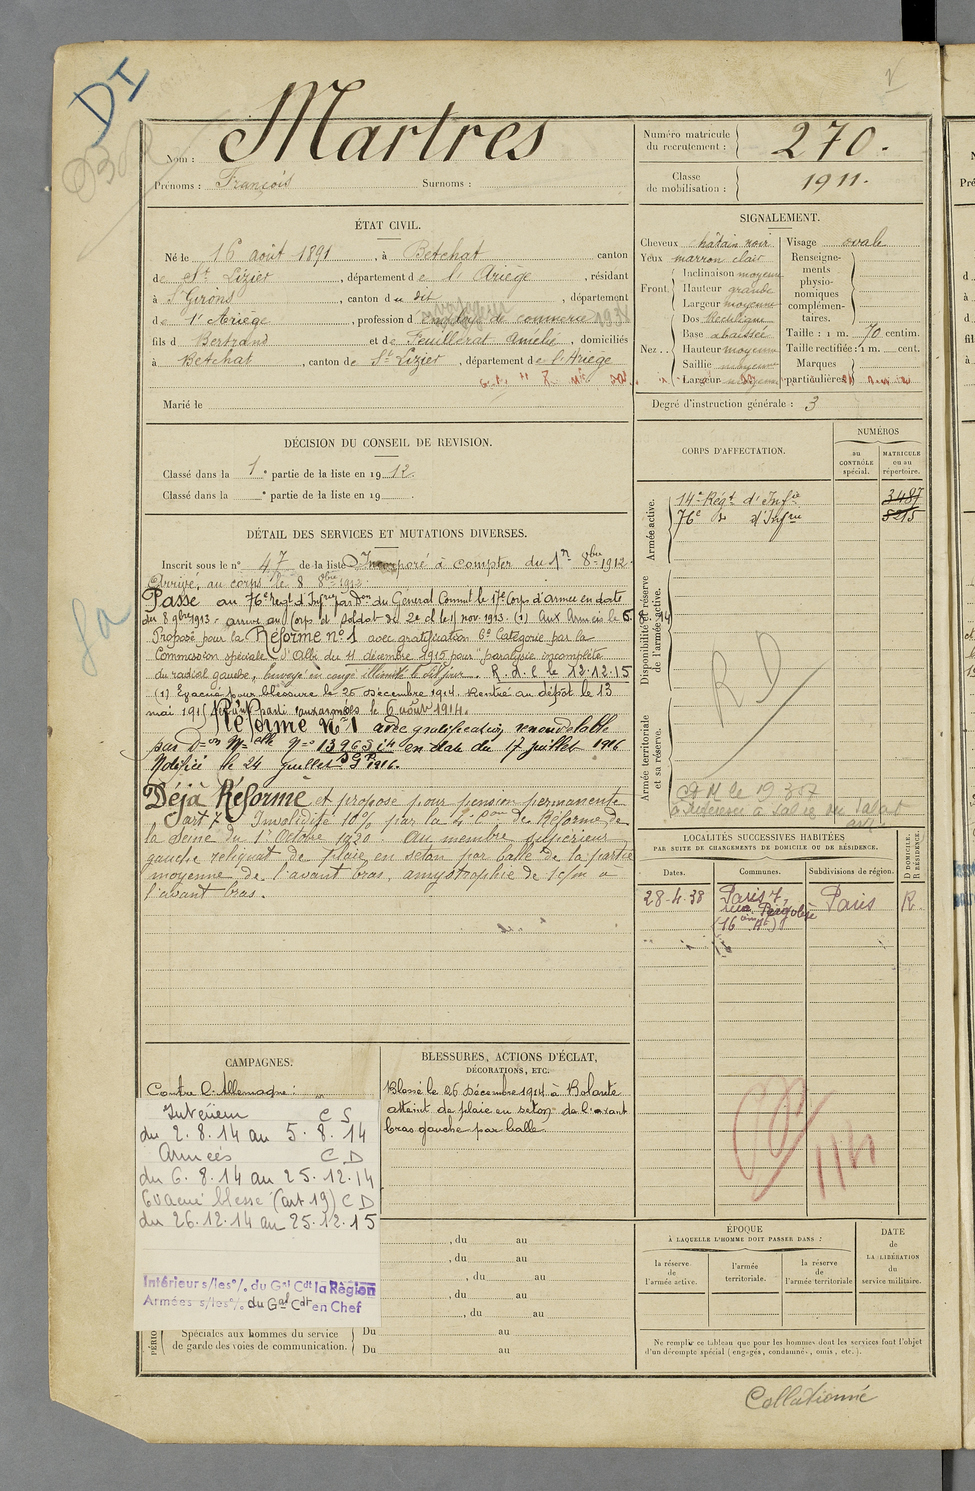 DI
Bon
fa
Nom : Martres
Prénoms : François Surnoms :
Numéro matricule du recrutement : 270.
Classe de mobilisation : 1911.
ÉTAT CIVIL.
Né le 16 août 1891, à Betchat canton
de St Lizier, département de l'Ariège, résidant
à St Girons, canton du dit, département
de l'Ariège, profession d'employé de commerce
fils d Bertrand et de Feuillerat Amélie, domiciliés
à Betchat, canton de St Lizier, département de l'Ariège
Marié le
SIGNALEMENT.
Cheveux châtain noir
Yeux marron clair
Front. Inclinaison moyenne
Hauteur grande
Largeur moyenne
Nez.. Dos Rectiligne
Base abaissée
Hauteur moyenne
Saillie moyenne
Largeur moyenne
Visage ovale
Renseignements physionomiques complémentaires.
Taille : 1 m. 70 centim.
Taille rectifiée : 1 m. cent.
Marques particulières
Degré d'instruction générale : 3
DÉCISION DU CONSEIL DE REVISION.
Classé dans la 1e partie de la liste en 1912.
Classé dans la e partie de la liste en 19 .
DÉTAIL DES SERVICES ET MUTATIONS DIVERSES.
Inscrit sous le n° 47 de la liste Incorporé à compter du 1er 8bre 1912.
Arrivé au corps le 8 8bre 1912.
Passé au 76e Regt d'Infrie par Don du Général Commt le 17e Corps d'Armée en date
du 8 9bre 1913 - arrivé au Corps et soldat de 2e cl le 15 nov 1913. (1) Aux Armées le 5.8.14
Proposé pour la Réforme n° 1 avec gratification 6e Catégorie par la
Commission spéciale d'Albi du 11 décembre 1915 pour "paralysie incomplète
du radial gauche, Envoyé en congé illimité le dit jour. R.d.l. le 12-12-15
(1) Evacué pour blessure le 25 Décembre 1914. Rentré au dépôt le 13
mai 1915 Parti aux armées le 6 août 1914.
Réformé N° 1 avec gratification renouvelable
par Don Melle N° 13965 i4 en date du 17 juillet 1916
Notifiée le 24 juillet 1916.
Déjà Réformé et proposé pour pension permanente
art 7 Invalidité 10% par la 4e Con de Réforme de
la Seine du 1er Octobre 1920. Au membre supérieur
gauche reliquat de plaie en séton par balle de la partie
moyenne de l'avant bras, amyotrophie de 1c/m à
l'avant bras.
CORPS D'AFFECTATION.
NUMÉROS
au CONTRÔLE spécial.
MATRICULE ou au répertoire.
Armée active.
14e Régt d'Infie 3487
76e d° d'Infrie 5215
Disponibilité et réserve de l'armée active.
RD
Armée territoriale et sa réserve.
LOCALITÉS SUCCESSIVES HABITÉES
PAR SUITE DE CHANGEMENTS DE DOMICILE OU DE RÉSIDENCE.
D DOMICILE. R RÉSIDENCE.
Dates. Communes. Subdivisions de région.
28-4-38 Paris 7, rue Pergolèse (16ème Art) Paris R.
CAMPAGNES.
Contre l'Allemagne :
Intérieur CS
du 2.8.14 au 5.8.14
Armées CD
du 6.8.14 au 25.12.14
Evacué blessé (art 19) CD
du 26.12.14 au 25.12.15
Intérieur s/les°/. du Gal Cdt la Région
Armées s/les°/. du Gal Cdt en Chef
BLESSURES, ACTIONS D'ÉCLAT,
DÉCORATIONS, ETC.
Blessé le 26 Décembre 1914 à Bolante
atteint de plaie en séton de l'avant
bras gauche par balle
, du au
, du au
, du au
, du au
, du au
Spéciales aux hommes du service de garde des voies de communication. Du au
Du au
ÉPOQUE
À LAQUELLE L'HOMME DOIT PASSER DANS :
la réserve de l'armée active.
l'armée territoriale.
la réserve de l'armée territoriale
DATE de LA LIBÉRATION du service militaire.
Ne remplir ce tableau que pour les hommes dont les services font l'objet
d'un décompte spécial (engagés, condamnés, omis, etc.).
Collationné